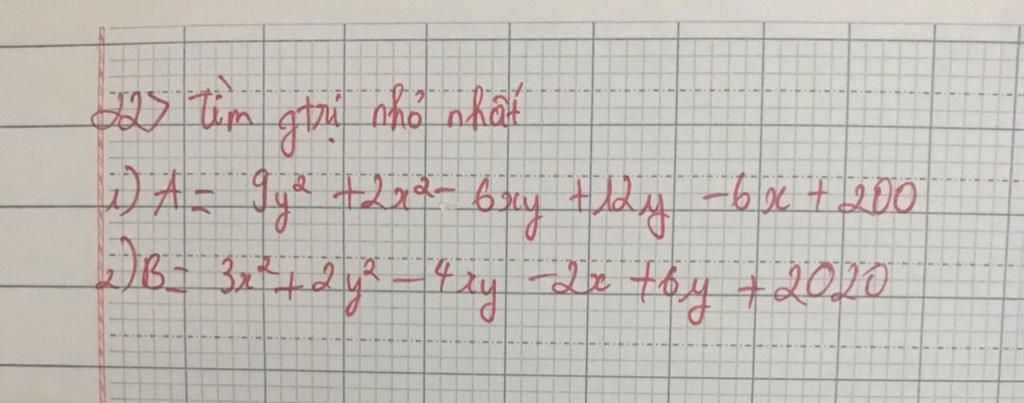 22> Tìm gtrị nhỏ nhất
1) A = 9y² + 2x² - 6xy + 12y - 6x + 200
2) B = 3x² + 2y² - 4xy - 2x + 6y + 2020